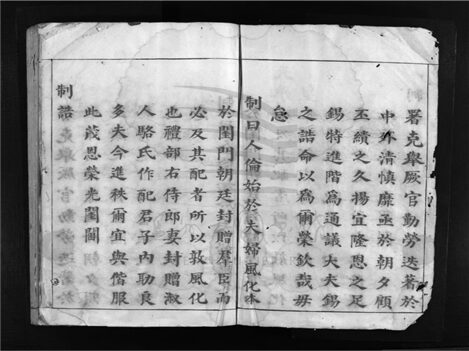 署克舉厥官勤勞迭著於
中外清慎靡亟於朝夕顧
丕績之久揚宜隆恩之足
錫特進階爲通議大夫錫
之誥命以爲爾榮欽哉毋
怠
制曰人倫始於夫婦風化本
於閨門朝廷封贈羣臣而
必及其配者所以敦風化
也禮部右侍郎妻封贈淑
人駱氏作配君子內助良
多夫今進秩爾宜與偕服
此茂恩榮光閨閫
制誥